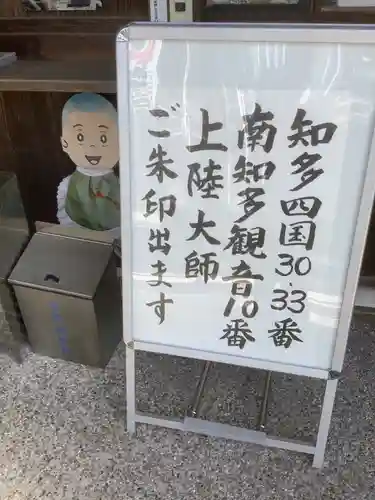 知多四国30.33番
南知多観音10番
上陸大師
ご朱印出ます